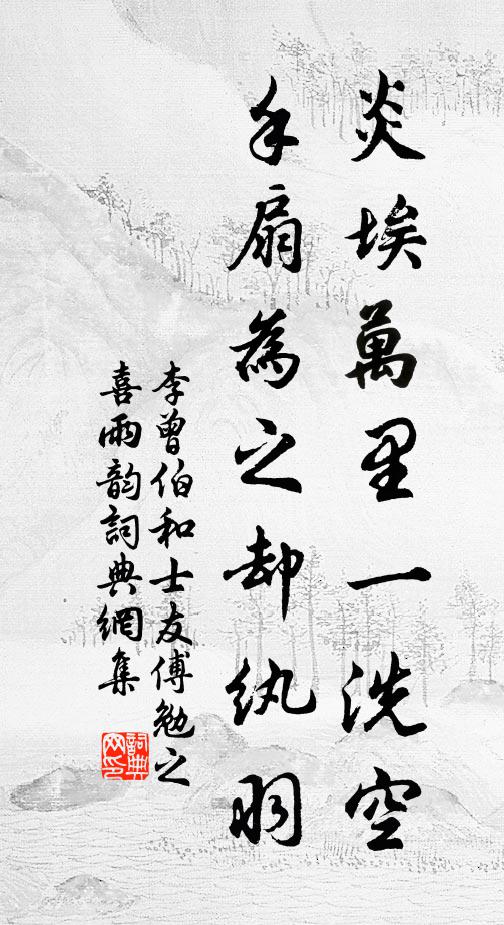 炎埃萬里一洗空
手扇為之却紈羽
李曾伯和士友傅勉之
喜雨韵詞典網集
詞典
网印